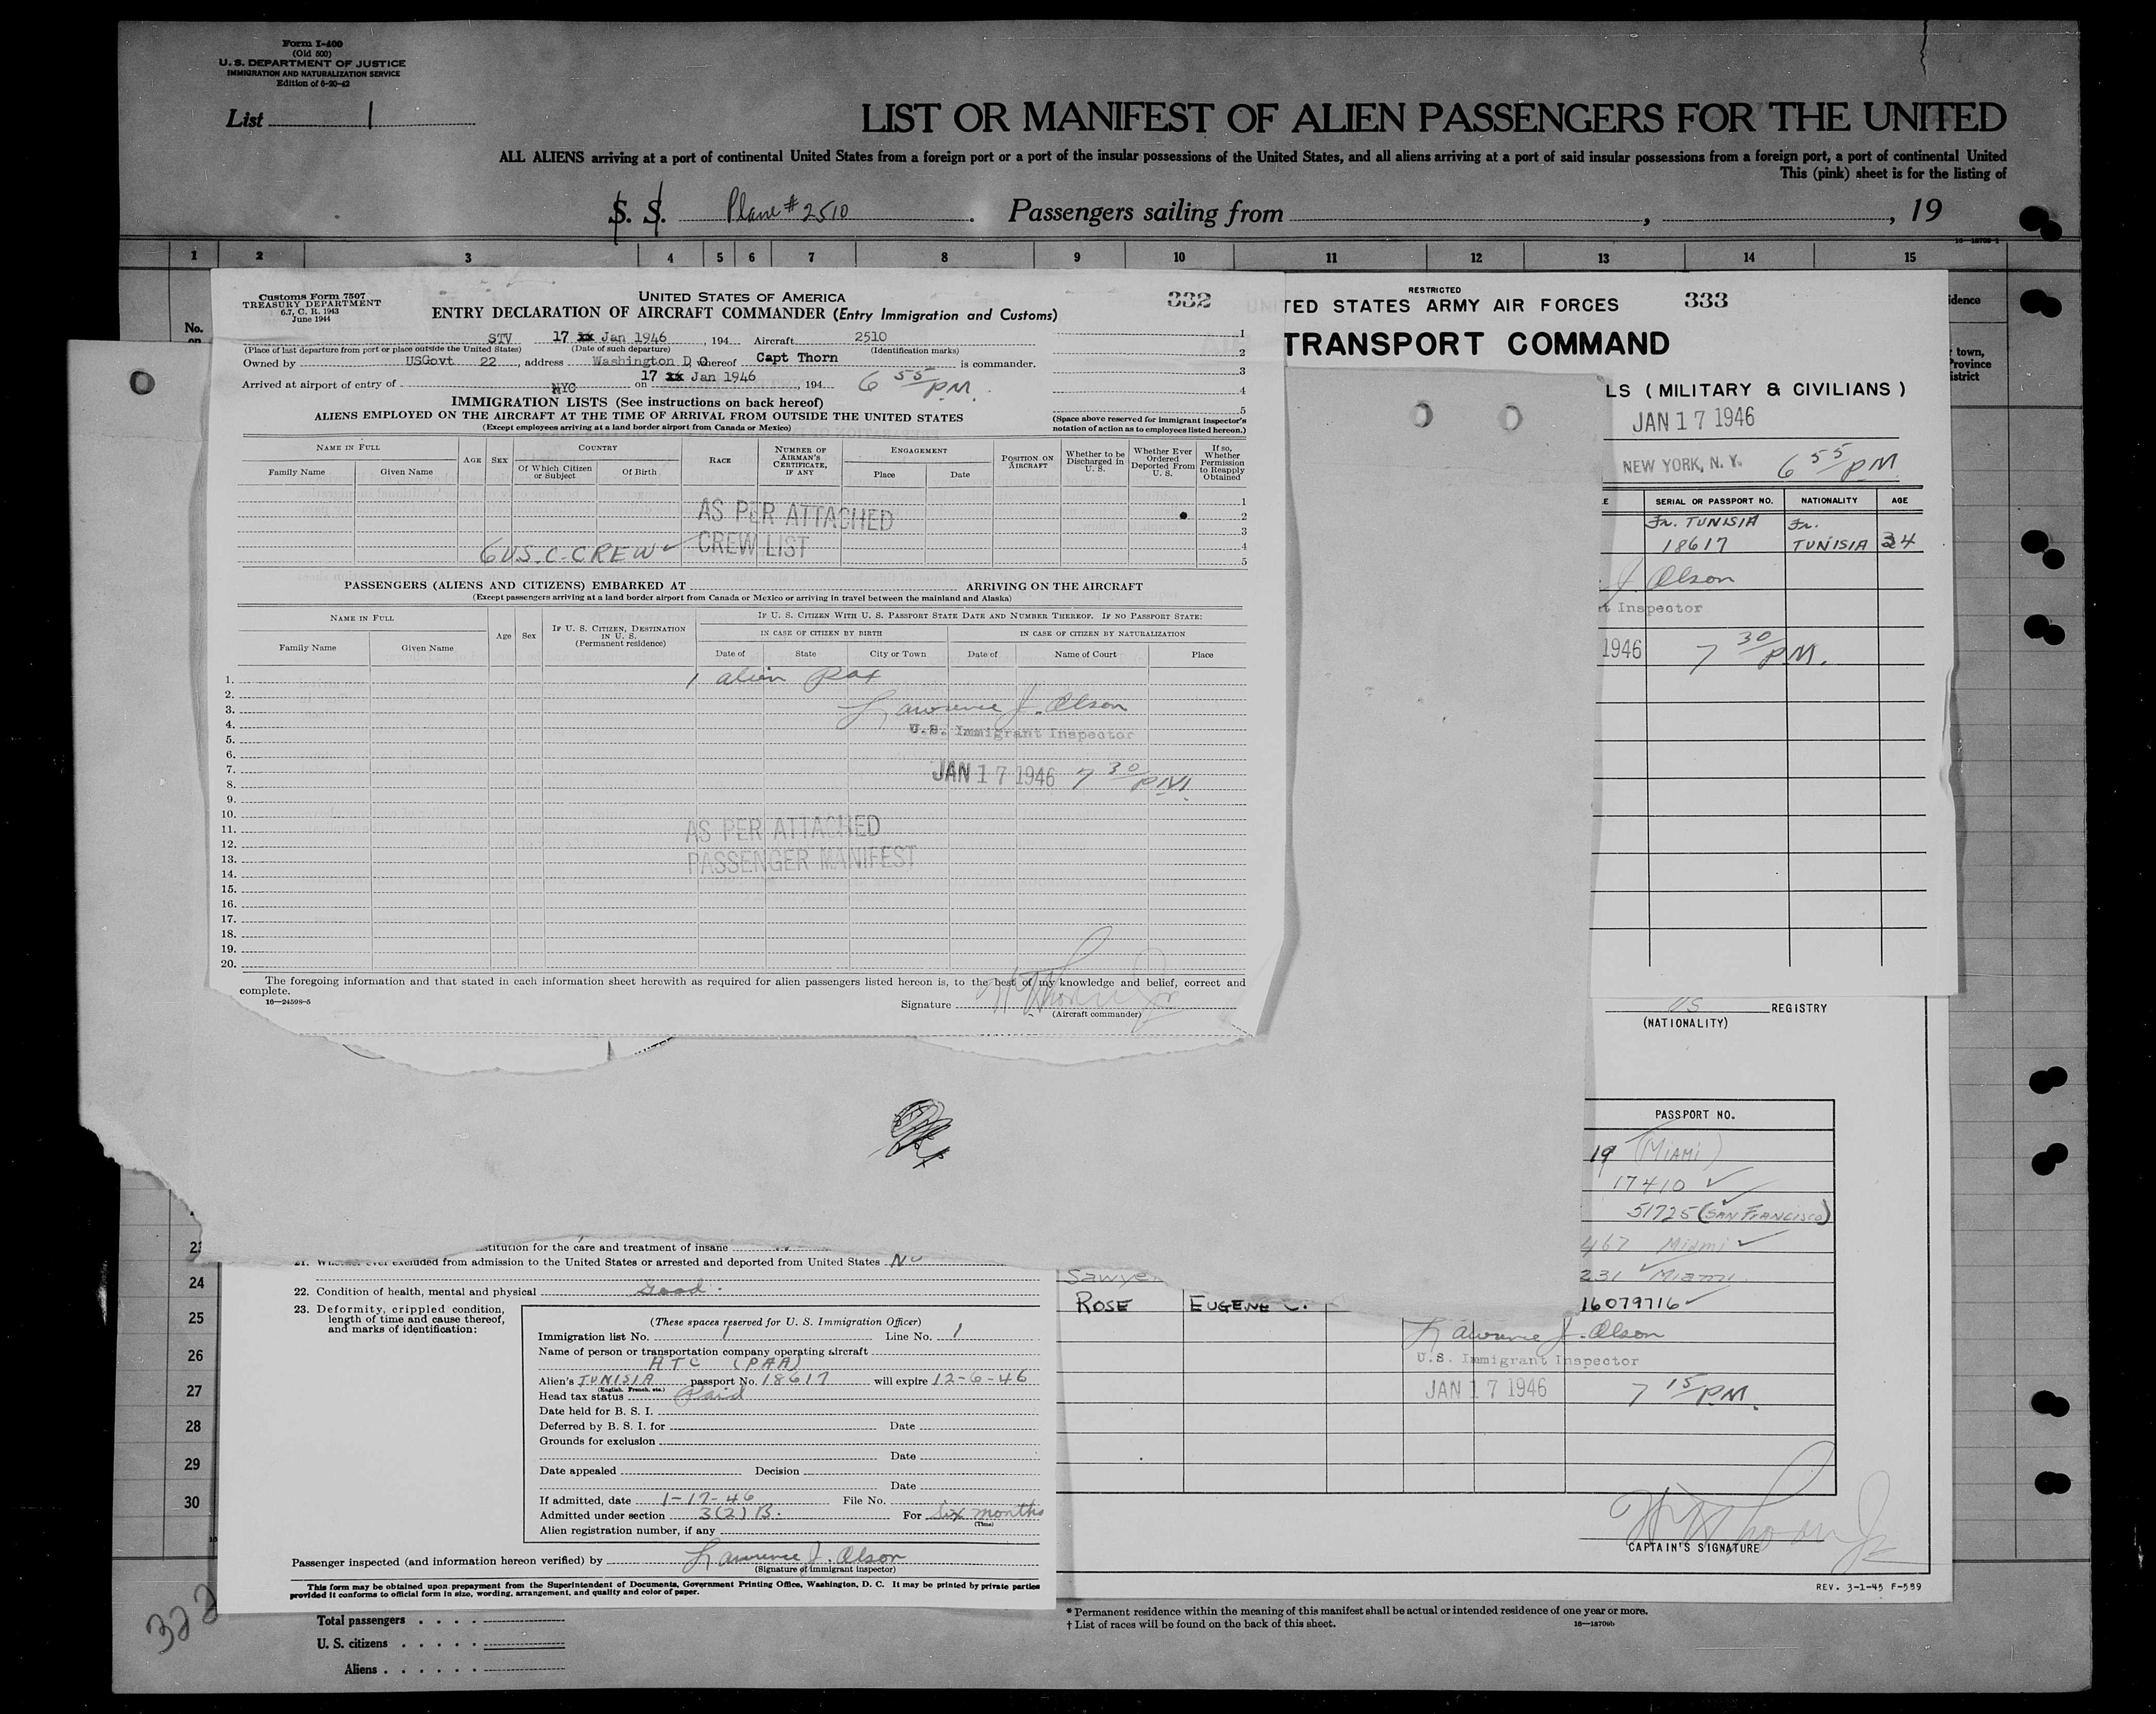 Form I-400
(Old 500)
U. S. DEPARTMENT OF JUSTICE
IMMIGRATION AND NATURALIZATION SERVICE
Edition of 6-20-42
List 1
LIST OR MANIFEST OF ALIEN PASSENGERS FOR THE UNITED
ALL ALIENS arriving at a port of continental United States from a foreign port or a port of the insular possessions of the United States, and all aliens arriving at a port of said insular possessions from a foreign port, a port of continental United
This (pink) sheet is for the listing of
S. S. Plane # 2510. Passengers sailing from , , 19
1 2 3 4 5 6 7 8 9 10 11 12 13 14 15
No.
on
idence
town,
Province
istrict
Customs Form 7507
TREASURY DEPARTMENT
6.7, C. R. 1943
June 1944
UNITED STATES OF AMERICA
332
ENTRY DECLARATION OF AIRCRAFT COMMANDER (Entry Immigration and Customs)
STV 17 Jan 1946, 194 Aircraft 2510
(Place of last departure from port or place outside the United States) (Date of such departure) (Identification marks)
Owned by USGovt 22, address Washington D C, whereof Capt Thorn is commander.
Arrived at airport of entry of NYC on 17 Jan 1946, 194 6 55/PM.
1
2
3
4
5
IMMIGRATION LISTS (See instructions on back hereof)
ALIENS EMPLOYED ON THE AIRCRAFT AT THE TIME OF ARRIVAL FROM OUTSIDE THE UNITED STATES
(Except employees arriving at a land border airport from Canada or Mexico)
(Space above reserved for immigrant inspector's
notation of action as to employees listed hereon.)
NAME IN FULL
Family Name Given Name
AGE SEX
COUNTRY
Of Which Citizen or Subject Of Birth
RACE
NUMBER OF AIRMAN'S CERTIFICATE, IF ANY
ENGAGEMENT
Place Date
POSITION ON AIRCRAFT
Whether to be Discharged in U. S.
Whether Ever Ordered Deported From U. S.
If so, Whether Permission to Reapply Obtained
AS PER ATTACHED
CREW LIST
6 US.C-CREW
1
2
3
4
5
PASSENGERS (ALIENS AND CITIZENS) EMBARKED AT ARRIVING ON THE AIRCRAFT
(Except passengers arriving at a land border airport from Canada or Mexico or arriving in travel between the mainland and Alaska)
NAME IN FULL
Family Name Given Name
Age Sex
IF U. S. CITIZEN, DESTINATION IN U. S.
(Permanent residence)
IF U. S. CITIZEN WITH U. S. PASSPORT STATE DATE AND NUMBER THEREOF. IF NO PASSPORT STATE:
IN CASE OF CITIZEN BY BIRTH IN CASE OF CITIZEN BY NATURALIZATION
Date of State City or Town Date of Name of Court Place
1. 1 alien Pax
2.
3. Lawrence J. Olson
4.
5. U.S. Immigrant Inspector
6.
7.
8. JAN 17 1946 7 30/PM.
9.
10.
11. AS PER ATTACHED
12.
13. PASSENGER MANIFEST
14.
15.
16.
17.
18.
19.
20.
The foregoing information and that stated in each information sheet herewith as required for alien passengers listed hereon is, to the best of my knowledge and belief, correct and
complete.
16—24598-5
Signature
(Aircraft commander)
RESTRICTED
TED STATES ARMY AIR FORCES 333
TRANSPORT COMMAND
LS (MILITARY & CIVILIANS)
JAN 17 1946
NEW YORK, N. Y. 6 55/PM
E SERIAL OR PASSPORT NO. NATIONALITY AGE
Fr. TUNISIA Fr.
18617 TUNISIA 34
J. Olson
t Inspector
1946 7 30/PM.
US REGISTRY
(NATIONALITY)
PASSPORT NO.
19 (MIAMI)
17410
51725 (SAN FRANCISCO)
467 Miami
231 Miami
Sawye
ROSE EUGENE C. 16079716
Lawrence J. Olson
U.S. Immigrant Inspector
JAN 17 1946 7 15/PM.
CAPTAIN'S SIGNATURE
REV. 3-1-45 F-559
stitution for the care and treatment of insane
21. excluded from admission to the United States or arrested and deported from United States No
22. Condition of health, mental and physical Good.
23. Deformity, crippled condition,
length of time and cause thereof,
and marks of identification:
24
25
26
27
28
29
30
(These spaces reserved for U. S. Immigration Officer)
Immigration list No. 1 Line No. 1
Name of person or transportation company operating aircraft
ATC (PAA)
Alien's TUNISIA passport No. 18617 will expire 12-6-46
(English, French, etc.)
Head tax status Paid
Date held for B. S. I.
Deferred by B. S. I. for Date
Grounds for exclusion
Date
Date appealed Decision
Date
If admitted, date 1-17-46 File No.
Admitted under section 3(2) B. For Six months
(Time)
Alien registration number, if any
Passenger inspected (and information hereon verified) by Lawrence J. Olson
(Signature of immigrant inspector)
This form may be obtained upon prepayment from the Superintendent of Documents, Government Printing Office, Washington, D. C. It may be printed by private parties
provided it conforms to official form in size, wording, arrangement, and quality and color of paper.
Total passengers
U. S. citizens
Aliens
* Permanent residence within the meaning of this manifest shall be actual or intended residence of one year or more.
† List of races will be found on the back of this sheet.
16—18709b